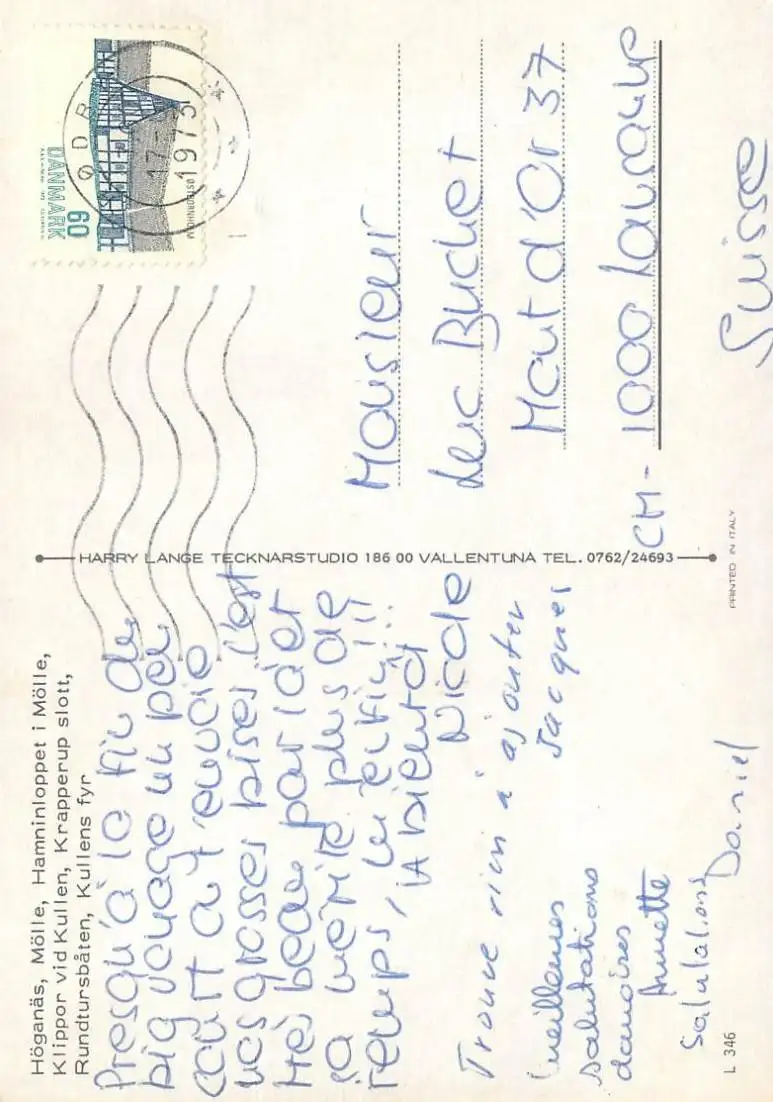 Höganäs, Mölle, Hamninloppet i Mölle,
Klippor vid Kullen, Krapperup slott,
Rundtursbåten, Kullens fyr
Presqu'à la fin du
big voyage un peu
court on t'envoie
nos grosses bises. C'est
très beau par ici et
ça mérite plus de
temps, enfin!!!
A bientôt
Nicole
Trouve rien à ajouter
Jacques
Meilleures
salutations
danoises
Annette
Salutations
Daniel
L 346
HARRY LANGE TECKNARSTUDIO 186 00 VALLENTUNA TEL. 0762/24693
PRINTED IN ITALY
DANMARK
60
ØSTBORNHOLM
17
1975
Monsieur
Luc Buchet
Mont d'Or 37
CH- 1000 Lausanne
Suisse